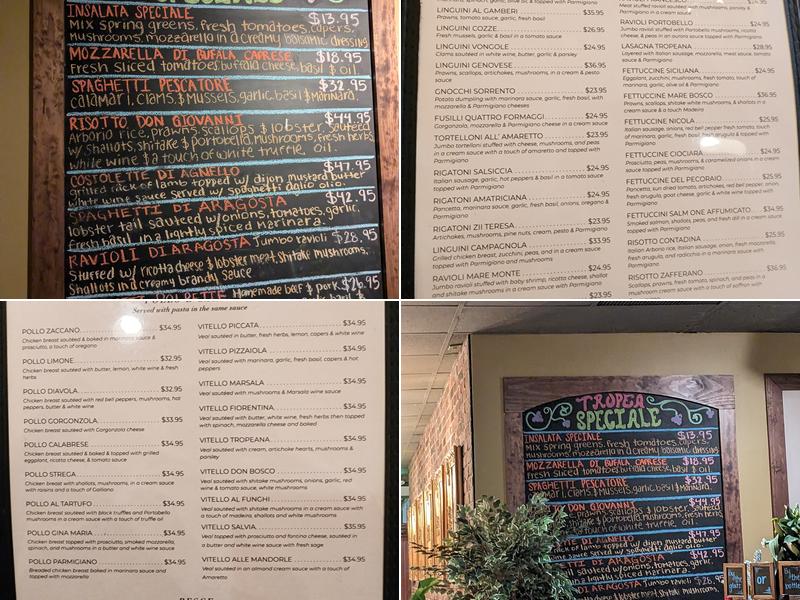 INSALATA SPECIALE $13.95
Mix spring greens, fresh tomatoes, capers,
mushrooms, mozzarella in a creamy balsamic dressing
MOZZARELLA DI BUFALA CAPRESE $18.95
Fresh sliced tomatoes, buffalo cheese, basil & oil.
SPAGHETTI PESCATORE $32.95
calamari, clams, & mussels, garlic, basil & marinara.
RISOTTO DON GIOVANNI $44.95
Arborio rice, prawns, scallops & lobster, sauteed
w/ shallots, shitake & portobella mushrooms, fresh herbs
while wine & a touch of white truffle, oil.
COSTOLETTE DI AGNELLO $47.95
grilled rack of lamb topped w/ dijon mustard butter
white wine sauce served w/ spaghetti aglio olio.
SPAGHETTI DI ARAGOSTA $42.95
lobster tail sauteed w/onions, tomatoes, garlic,
fresh basil in a lightly spiced marinara.
RAVIOLI DI ARAGOSTA Jumbo ravioli $28.95
Stuffed w/ ricotta cheese & lobster meat, Shitaki mushrooms,
Shallots in creamy brandy sauce
POLPETTE Homemade beef & pork $26.95
LINGUINI AL GAMBERI $35.95
Prawns, tomato sauce, garlic, fresh basil
LINGUINI COZZE $26.95
Fresh mussels, garlic & basil in a tomato sauce
LINGUINI VONGOLE $24.95
Clams sautéed in white wine, butter, garlic & parsley
LINGUINI GENOVESE $36.95
Prawns, scallops, artichokes, mushrooms, in a cream & pesto
sauce
GNOCCHI SORRENTO $23.95
Potato dumpling with marinara sauce, garlic, fresh basil, with
mozzarella & Parmigiano cheeses
FUSILLI QUATTRO FORMAGGI $24.95
Gorgonzola, mozzarella & Parmigiano cheese in a cream sauce
TORTELLONI AL' AMARETTO $23.95
Jumbo tortelloni stuffed with cheese, mushrooms, and peas
in a cream sauce with a touch of amaretto and topped with
Parmigiano
RIGATONI SALSICCIA $24.95
Italian sausage, garlic, hot peppers & basil in a tomato sauce
topped with Parmigiano
RIGATONI AMATRICIANA $24.95
Pancetta, marinara sauce, garlic, fresh basil, onions, oregano &
Parmigiano
RIGATONI ZII TERESA $23.95
Artichokes, mushrooms, pine nuts, cream, pesto & Parmigiano
LINGUINI CAMPAGNOLA $33.95
Grilled chicken breast, zucchini, peas, and in a cream sauce
topped with Parmigiano and mushrooms
RAVIOLI MARE MONTE $24.95
Jumbo ravioli stuffed with baby shrimp, ricotta cheese, shallot
and shitake mushrooms in a cream sauce with Parmigiano
$23.95
Parmigiano in a cream sauce
RAVIOLI PORTOBELLO $24.95
Jumbo ravioli stuffed with Portobello mushrooms, ricotta
cheese, & peas in an aurora sauce topped with Parmigiano
LASAGNA TROPEANA $28.95
Layered with Italian sausage, mozzarella, meat sauce, tomato
sauce & Parmigiano
FETTUCCINE SICILIANA $24.95
Eggplant, zucchini, mushrooms, fresh tomato, touch of
marinara, garlic, olive oil & Parmigiano
FETTUCCINE MARE BOSCO $36.95
Prawns, scallops, shitake white mushrooms, & shallots in a
cream sauce & a touch Madeira
FETTUCCINE NICOLA $25.95
Italian sausage, onions, red bell pepper fresh tomato, touch
of marinara, garlic, fresh basil, fresh arugula & topped with
Parmigiano
FETTUCCINE CIOCIARA $24.95
Prosciutto, peas, mushrooms, & caramelized onions in a cream
sauce topped with Parmigiano
FETTUCCINE DEL PECORAIO $25.95
Pancetta, sun dried tomato, artichokes, red bell pepper, onion,
fresh arugula, goat cheese, garlic & white wine topped with
Parmigiano
FETTUCCINI SALMONE AFFUMICATO $34.95
Smoked salmon, shallots, peas, and fresh dill in a cream sauce
topped with Parmigiano
RISOTTO CONTADINA $25.95
Italian Arborio rice, Italian sausage, onion, fresh mozzarella,
fresh arugula, and radicchio in a marinara sauce with
Parmigiano
RISOTTO ZAFFERANO $36.95
Scallops, prawns, fresh tomato, spinach, and peas in a
mushroom cream sauce with a touch of saffron with
Served with pasta in the same sauce
POLLO ZACCANO $34.95
Chicken breast sautéed & baked in marinara sauce &
prosciutto, a touch of oregano
POLLO LIMONE $32.95
Chicken breast sautéed with butter, lemon, white wine & fresh
herbs
POLLO DIAVOLA $32.95
Chicken breast sautéed with red bell peppers, mushrooms, hot
peppers, butter & white wine
POLLO GORGONZOLA $33.95
Chicken breast sautéed with Gorgonzola cheese
POLLO CALABRESE $34.95
Chicken breast sautéed & baked & topped with grilled
eggplant, ricotta cheese, & tomato sauce
POLLO STREGA $34.95
Chicken breast with shallots, mushrooms, in a cream sauce
with raisins and a touch of Galliano
POLLO AL TARTUFO $34.95
Chicken breast sautéed with black truffles and Portobello
mushrooms in a cream sauce with a touch of truffle oil
POLLO GINA MARIA $34.95
Chicken breast topped with prosciutto, smoked mozzarella,
spinach, and mushrooms in a butter and white wine sauce
POLLO PARMIGIANO $34.95
Breaded chicken breast baked in marinara sauce and
topped with mozzarella
VITELLO PICCATA $34.95
Veal sautéed in butter, fresh herbs, lemon, capers & white wine
VITELLO PIZZAIOLA $34.95
Veal sautéed with marinara, garlic, fresh basil, capers & hot
peppers
VITELLO MARSALA $34.95
Veal sautéed with mushrooms & Marsala wine sauce
VITELLO FIORENTINA $34.95
Veal sautéed in butter, white wine, fresh herbs then topped
with spinach, mozzarella cheese and baked
VITELLO TROPEANA $34.95
Veal sautéed with cream, artichoke hearts, mushrooms &
parsley
VITELLO DON BOSCO $34.95
Veal sautéed with shitake mushrooms, onions, garlic, red
wine & tomato sauce, white mushrooms
VITELLO AL FUNGHI $34.95
Veal sautéed with shitake mushrooms in a cream sauce with
a touch of madeira, shallots and white mushrooms
VITELLO SALVIA $35.95
Veal topped with prosciutto and fontina cheese, sautéed in
a butter and white wine sauce with fresh sage
VITELLO ALLE MANDORLE $34.95
Veal sautéed in an almond cream sauce with a touch of
Amaretto
PESCE
TROPEA
SPECIALE
INSALATA SPECIALE $13.95
Mix spring greens, fresh tomatoes, capers,
mushrooms, mozzarella in a creamy balsamic dressing
MOZZARELLA DI BUFALA CAPRESE $18.95
fresh sliced tomatoes, buffalo cheese, basil & oil.
SPAGHETTI PESCATORE $32.95
clams, & mussels, garlic, basil & marinara.
DON GIOVANNI $44.95
prawns, scallops & lobster, sauteed
shitake & portobella mushrooms, fresh herbs
a touch of white truffle, oil.
DI AGNELLO $47.95
rack of lamb topped w/ dijon mustard butter
sauce served w/ spaghetti aglio olio.
DI ARAGOSTA $42.95
sauteed w/onions, tomatoes, garlic,
in a lightly spiced marinara.
DI ARAGOSTA Jumbo ravioli $28.95
cheese & lobster meat, Shitaki mushrooms,
By the glass
or
By the bottle